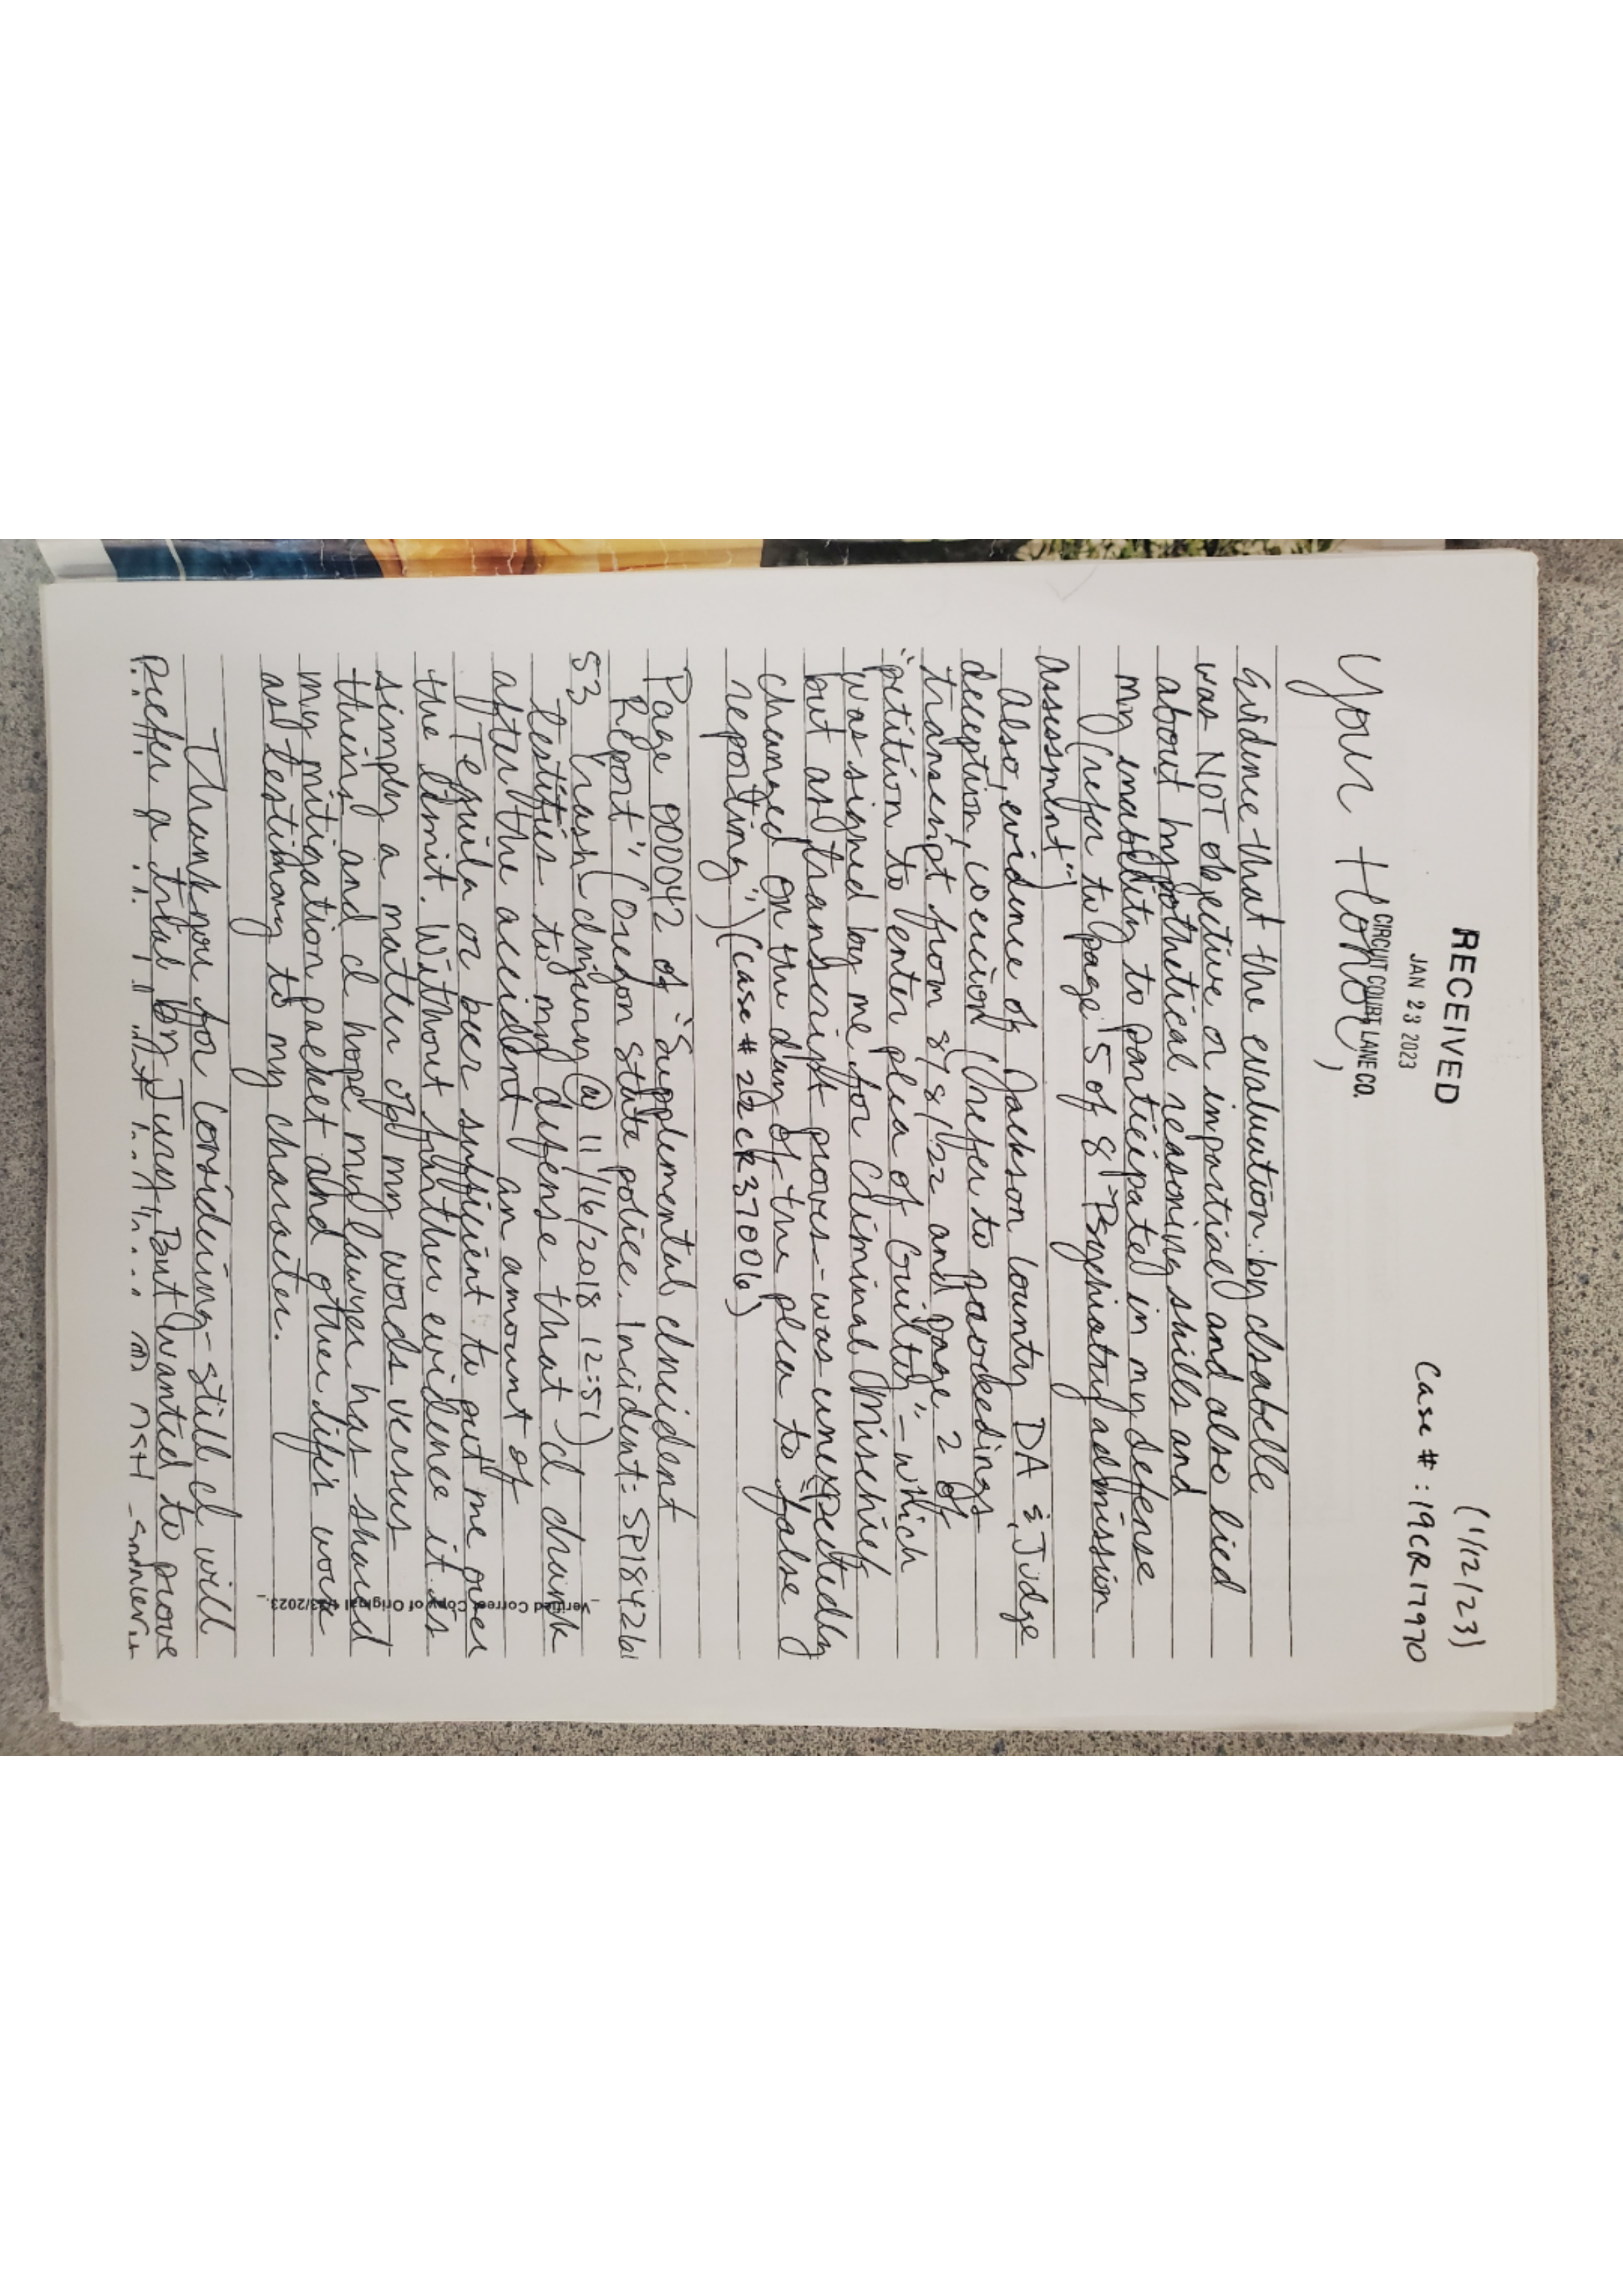 RECEIVED
JAN 23 2023
CIRCUIT COURT LANE CO.
(1/12/23)
Case # : 19CR17970
Your Honor,
Evidence that the evaluation by Isabelle
was NOT objective or impartial and also lied
about hypothetical reasoning skills and
my inability to participated in my defense
(refer to page "5 of 8 - Psychiatry admission
assessment")
Also, evidence of Jackson County DA & Judge
deception, coercion (refer to
transcript from 8/8/22 and page 2 of
"petition to enter plea of Guilty" - which
was signed by me for Criminal Mischief
but as transcript proves - was unexpectedly
changed on the day of the plea to "false
reporting") (case # 22CR37006)
Page 000042 of "Supplemental Incident
Report" (Oregon state police. Incident:
53 Crash - Injury @ 11/16/2018 12:51)
testifies to my defense that I drank
after the accident an amount of
Tequila or beer sufficient to put me over
the limit. Without further evidence it is
simply a matter of my words versus
theirs and I hope my lawyer has shared
my mitigation packet and other life's work
as testimony to my character.
Thank you for considering - still I will
prefer a trial by Jury. But wanted to prove
Verified Correct Copy of Original 1/23/2023.